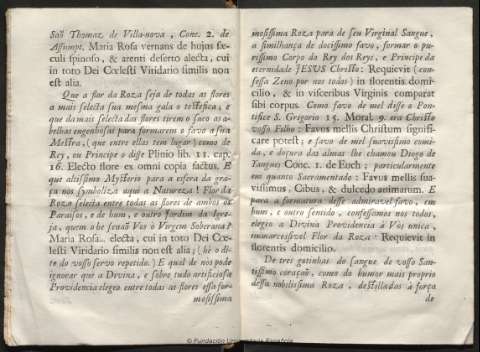 Saõ Thomaz de Villa-nova, Conc. 2. de
Assumpt. Maria Rosa vernans de hujus sæ-
culi spinoso, & arenti deserto electa, cui
in toto Dei Cœlesti Viridario similis non
est alia.
Que a flor da Roza seja de todas as flores
a mais selecta sua mesma gala o testefica, e
que da mais selecta das flores tirem o suco as a-
belhas engenhosas para formarem o favo a sua
Mestra, (que entre ellas tem lugar) como de
Rey, ou Principe o disse Plinio lib. 11. cap.
16. Electo flore ex omni copia factus. E
que altissimo Mysterio para a esfera da gra-
ça nos symboliza aqui a Natureza! Flor da
Roza selecta entre todas as flores de ambos os
Paraisos, e de hum, e outro Jardim da Igre-
ja, quem o he senaõ Vos ò Virgem Soberana?
Maria Rosa... electa, cui in toto Dei Cœ-
lesti Viridario similis non est alia; (he o di-
to do vosso servo repetido.) E qual de nos pode
ignorar que a Divina, e sobre tudo artificiosa
Providencia elegeo entre todas as flores essa for-
mosissima
mosissima Roza para de seu Virginal Sangue,
a similhança de docissimo favo, formar o pu-
rissimo Corpo do Rey dos Reys, e Principe da
eternidade JESUS Christo: Requievit (con-
fessa Zeno por nos todos) in florentis domi-
cilio, & in visceribus Virginis comparat
sibi corpus. Como favo de mel disse o Pon-
tifice S. Gregorio 15. Moral. 9. era Christo
vosso Filho: Favus mellis Christum signifi-
care potest; e favo de mel suavissimo comi-
da, e doçura das almas lhe chamou Diogo de
Tangus Conc. 1. de Euch; particularmente
em quanto Sacramentado: Favus mellis sua-
vissimus, Cibus, & dulcedo animarum. E
para a formatura desse admiravel favo, em
hum, e outro sentido, confessemos nos todos,
elegeo a Divina Providencia à Vòs unica,
immarcessivel Flor da Roza: Requievit in
florentis domicilio.
De tres gotinhas do sangue de vosso San-
tissimo coraçaõ, como do humor mais proprio
dessa nobilissima Roza, destilladas à força
de
© Fundación Universitaria Española